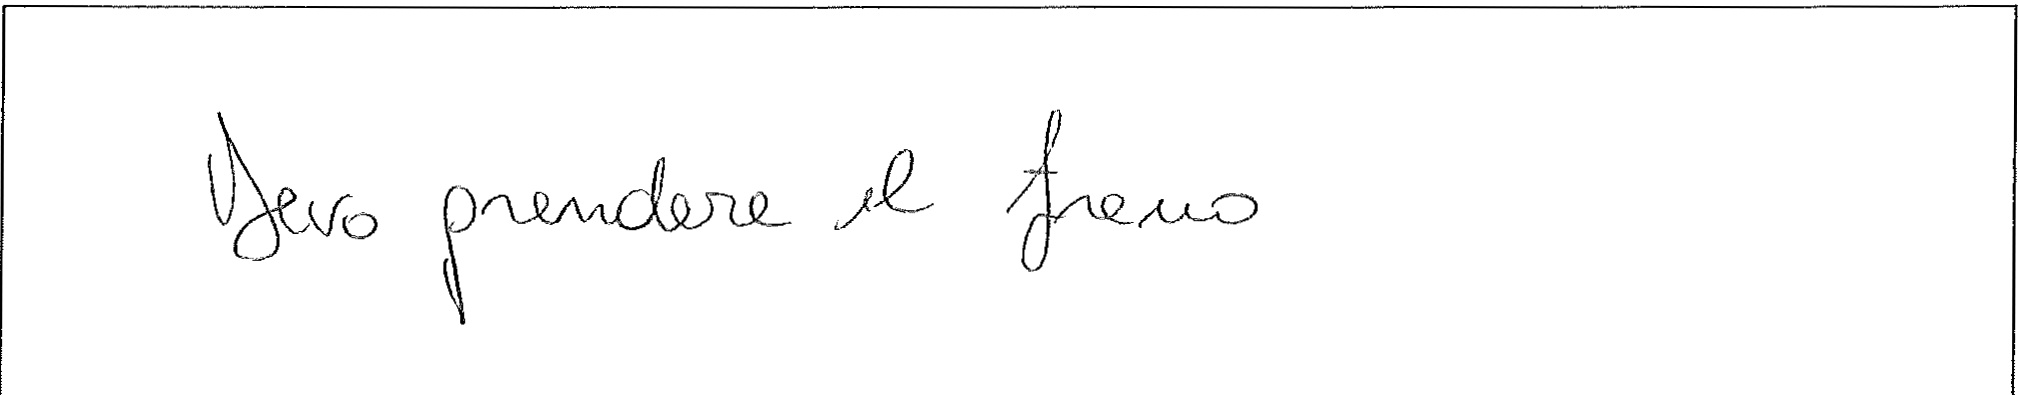 Devo prendere il freno